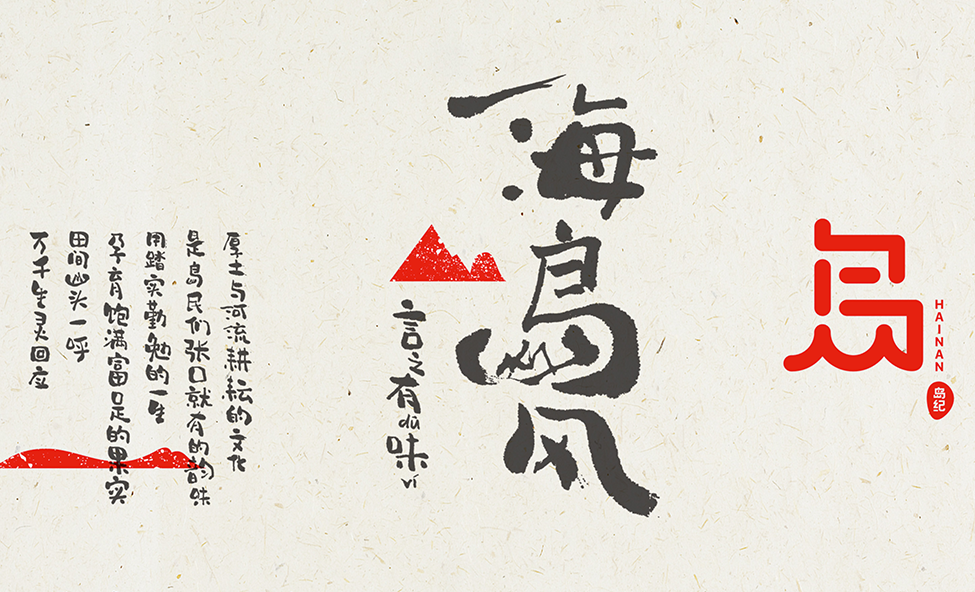 海岛风
言之有dú味vi
岛
HAINAN
岛纪
厚土与河流耕耘的文化
是岛民们张口就有的韵味
用踏实勤勉的一生
孕育饱满富足的果实
田间山头一呼
万千生灵回应